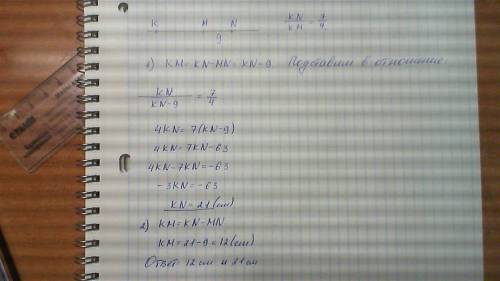 K M N KN/KM = 7/4
9
1) KM = KN - MN = KN - 9. Подставим в отношение
KN/KN-9 = 7/4
4KN = 7(KN-9)
4KN = 7KN - 63
4KN - 7KN = -63
-3KN = -63
KN = 21 (см)
2) KM = KN - MN
KM = 21 - 9 = 12 (см)
Ответ 12 см и 21 см